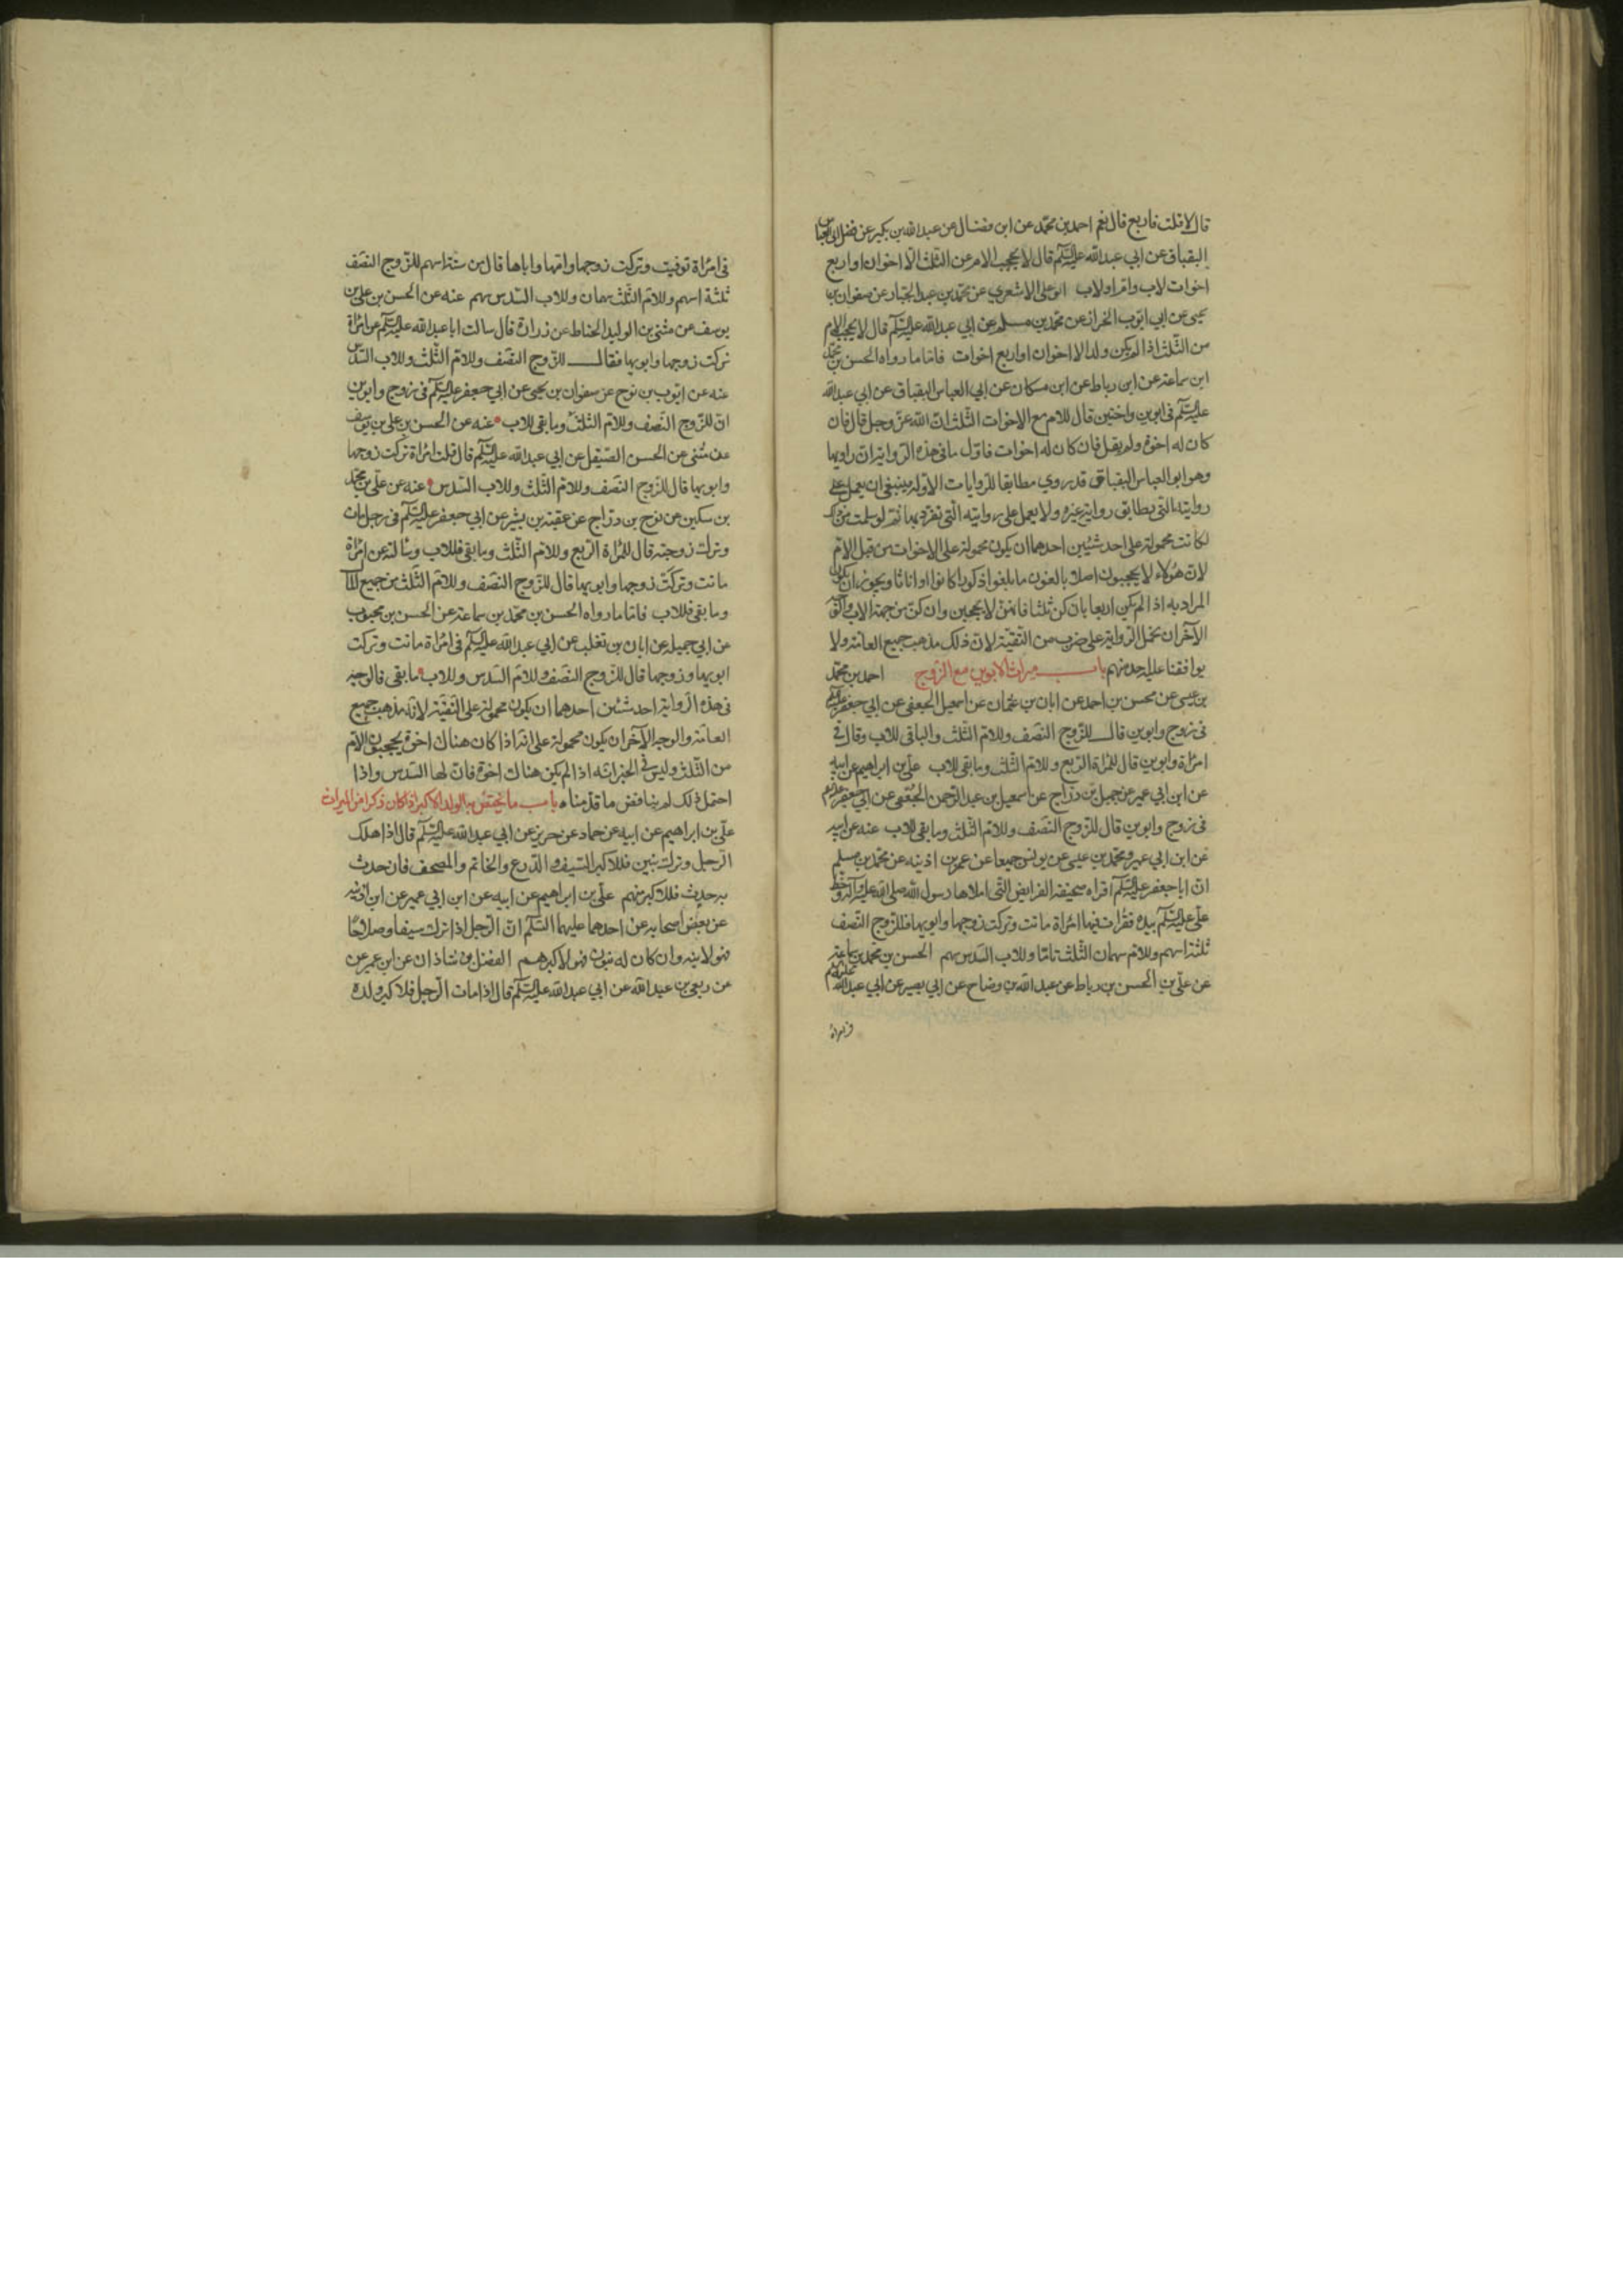 قال لا قلت فاربع قال نعم احمد بن محمد عن ابن فضال عن عبد الله بن بكير عن فضل ابي العباس
البقباق عن ابي عبد الله عليه السلم قال لا يحجب الام عن الثلث الا اخوان او اربع
اخوات لاب وام او لاب ابو علي الاشعري عن محمد بن عبد الجبار عن صفوان بن
يحيى عن ابي ايوب الخراز عن محمد بن مسلم عن ابي عبد الله عليه السلم قال لا يحجب الام
من الثلث اذا لم يكن ولد الا اخوان او اربع اخوات فاما ما رواه الحسن بن محمد
ابن سماعة عن ابن رباط عن ابن مسكان عن ابي العباس البقباق عن ابي عبد الله
عليه السلم في ابوين واختين قال للام مع الاخوات الثلث ان الله عز وجل قال فان
كان له اخوة ولم يقل فان كان له اخوات فاول ما في هذه الرواية ان راويها
وهو ابو العباس البقباق قد روي مطابقا للروايات الاولة فينبغي ان يعمل على
روايته التي يطابق رواية غيره ولا يعمل على روايته التي تفرد بها ثم لو سلمت من ذلك
لكانت محمولة على احد شيئين احدهما ان يكون محمولة على الاخوات من قبل الام
لان هؤلاء لا يحجبون اصلا بالغون ما بلغوا ذكورا كانوا او اناثا ويجوز ان يكون
المراد به اذا لم يكن اربعا بان كن ثلثا فانهن لا يحجبن وان كن من جهة الاب والوجه
الآخر ان نحمل الرواية على ضرب من التقية لان ذلك مذهب جميع العامة ولا
يوافقنا عليه احد منهم باب ميراث الابوين مع الزوج احمد بن محمد
بن عيسى عن محسن بن احمد عن ابان بن عثمان عن اسمعيل الجعفي عن ابي جعفر عليه السلم
في زوج وابوين قال للزوج النصف وللام الثلث والباقي للاب وقال في
امراة وابوين قال للمراة الربع وللام الثلث وما بقي للاب علي بن ابراهيم عن ابيه
عن ابن ابي عمير عن جميل بن دراج عن اسمعيل بن عبد الرحمن الجعفي عن ابي جعفر عليه السلم
في زوج وابوين قال للزوج النصف وللام الثلث وما بقي للاب عنه عن ابيه
عن ابن ابي عمير ومحمد بن عيسى عن يونس جميعا عن عمر بن اذينه عن محمد بن مسلم
ان ابا جعفر عليه السلم اقراه صحيفة الفرايض التي املاها رسول الله صلى الله عليه وآله وخط
علي عليه السلم بيده فقرات فيها امراة ماتت وتركت زوجها وابويها فللزوج النصف
ثلثة اسهم وللام سهمان الثلث تاما وللاب السدس سهم الحسن بن محمد بن سماعة
عن علي بن الحسن بن رباط عن عبد الله بن وضاح عن ابي بصير عن ابي عبد الله عليه السلم
في امراة
في امراة توفيت وتركت زوجها وامها واباها قال من ستة اسهم للزوج النصف
ثلثة اسهم وللام الثلث سهمان وللاب السدس سهم عنه عن الحسن بن علي بن
يوسف عن مثنى بن الوليد الحناط عن زرارة قال سالت ابا عبد الله عليه السلم عن امراة
تركت زوجها وابويها فقال للزوج النصف وللام الثلث وللاب السدس
عنه عن ايوب بن نوح عن صفوان بن يحيى عن ابي جعفر عليه السلم في زوج وابوين
ان للزوج النصف وللام الثلث وما بقي للاب عنه عن الحسن بن علي بن يوسف
عن مثنى عن الحسن الصيقل عن ابي عبد الله عليه السلم قال قلت امراة تركت زوجها
وابويها قال للزوج النصف وللام الثلث وللاب السدس عنه عن علي بن محمد
بن سكين عن نوح بن دراج عن عقبة بن بشير عن ابي جعفر عليه السلم في رجل مات
وترك زوجته قال للمراة الربع وللام الثلث وما بقي فللاب وسالته عن امراة
ماتت وتركت زوجها وابويها قال للزوج النصف وللام الثلث من جميع المال
وما بقي فللاب فاما ما رواه الحسن بن محمد بن سماعة عن الحسن بن محبوب
عن ابي جميله عن ابان بن تغلب عن ابي عبد الله عليه السلم في امراة ماتت وتركت
ابويها وزوجها قال للزوج النصف وللام السدس وللاب ما بقي فالوجه
في هذه الرواية احد شيئين احدهما ان يكون محمولة على التقية لانه مذهب جميع
العامة والوجه الآخر ان يكون محمولة على انه اذا كان هناك اخوة يحجبون الام
من الثلث وليس في الخبر انه اذا لم يكن هناك اخوة فان لها السدس واذا
احتمل ذلك لم يناقض ما قدمناه باب ما يختص به الولد الاكبر اذا كان ذكرا من الميراث
علي بن ابراهيم عن ابيه عن حماد عن حريز عن ابي عبد الله عليه السلم قال اذا هلك
الرجل وترك بنين فللاكبر السيف والدرع والخاتم والمصحف فان حدث
به حدث فللاكبر منهم علي بن ابراهيم عن ابيه عن ابن ابي عمير عن ابن اذينه
عن بعض اصحابه عن احدهما عليهما السلم ان الرجل اذا ترك سيفا وسلاحا
فهو لابنه وان كان له بنون فهو لاكبرهم الفضل بن شاذان عن ابن عمير عن
عن ربعي بن عبد الله عن ابي عبد الله عليه السلم قال اذا مات الرجل فلاكبر ولده